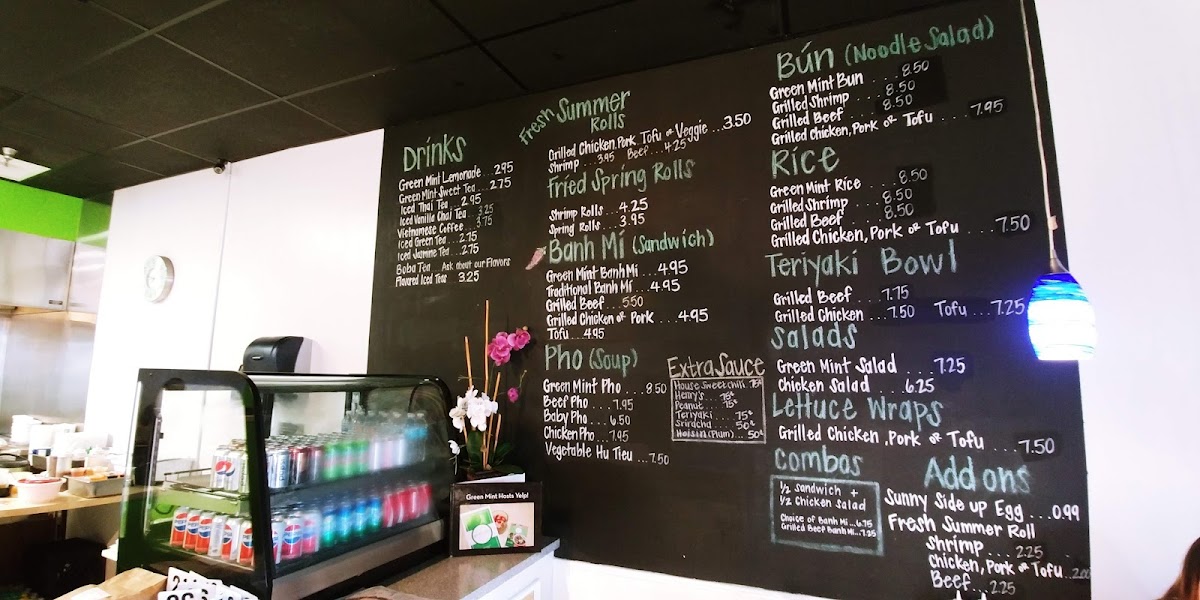 Drinks
Green Mint Lemonade ...2.95
Green Mint Sweet Tea ...2.75
Iced Thai Tea ...2.95
Iced Vanilla Chai Tea ...3.25
Vietnamese Coffee ...3.75
Iced Green Tea ...2.75
Iced Jasmine Tea ...2.75
Boba Tea .. Ask about our Flavors
Flavored Iced Teas 3.25
Fresh Summer
Rolls
Grilled Chicken, Pork, Tofu or Veggie ...3.50
Shrimp ...3.95 Beef ...4.25
Fried Spring Rolls
Shrimp Rolls ...4.25
Spring Rolls ...3.95
Banh Mi (Sandwich)
Green Mint Banh Mi ...4.95
Traditional Banh Mi ...4.95
Grilled Beef ...5.50
Grilled Chicken or Pork ...4.95
Tofu ...4.95
Pho (Soup)
Green Mint Pho ....8.50
Beef Pho ....7.95
Baby Pho ....6.50
Chicken Pho ...7.95
Vegetable Hu Tieu ...7.50
Extra Sauce
House Sweet Chili .75¢
Henry's .. 75¢
Peanut ... 75¢
Teriyaki .... 75¢
Sriracha .... 50¢
Hoisin (Plum) .. 50¢
Bún (Noodle Salad)
Green Mint Bun ....8.50
Grilled Shrimp ....8.50
Grilled Beef ....8.50
Grilled Chicken, Pork or Tofu ....7.95
Rice
Green Mint Rice ....8.50
Grilled Shrimp ....8.50
Grilled Beef ....8.50
Grilled Chicken, Pork or Tofu ....7.50
Teriyaki Bowl
Grilled Beef ...7.75
Grilled Chicken ...7.50 Tofu ...7.25
Salads
Green Mint Salad ....7.25
Chicken Salad ....6.25
Lettuce Wraps
Grilled Chicken, Pork or Tofu ....7.50
Combos
1/2 Sandwich +
1/2 Chicken Salad
Choice of Banh Mi...6.75
Grilled Beef Banh Mi...7.25
Add ons
Sunny Side up Egg ...0.99
Fresh Summer Roll
Shrimp ....2.25
Chicken, Pork or Tofu...2.00
Beef ...2.25
Green Mint Hosts Yelp!
pepsi